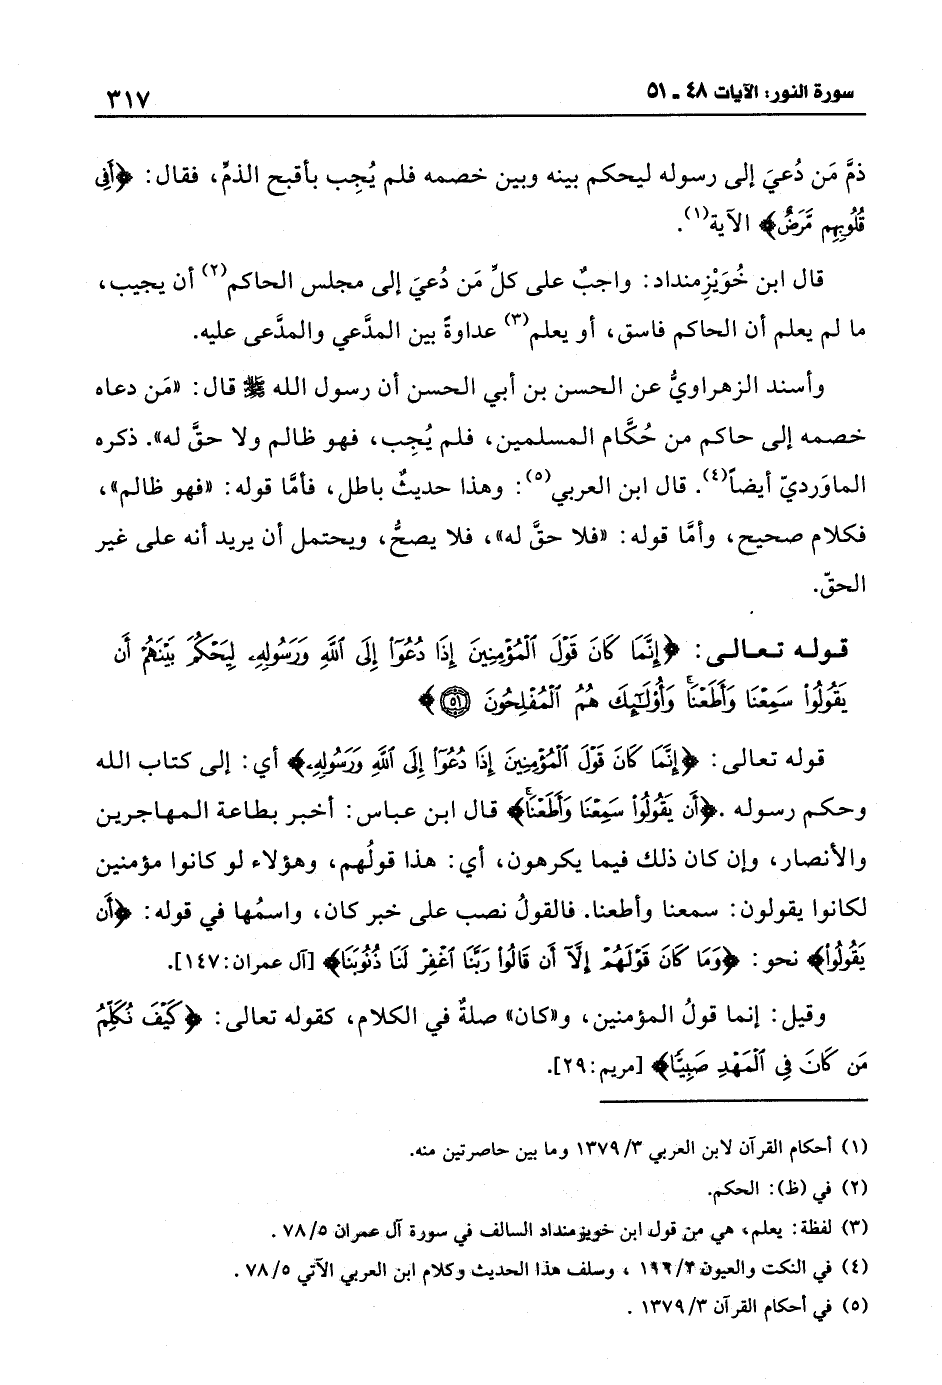 سورة النور: الآيات ٤٨ ـ ٥١
٣١٧
ذمَّ مَن دُعيَ إلى رسوله ليحكم بينه وبين خصمه فلم يُجِب بأقبح الذمِّ، فقال: ﴿أَفِي
قُلُوبِهِم مَّرَضٌ﴾ الآية(١).
قال ابن خُوَيْزِمنداد: واجبٌ على كلِّ مَن دُعيَ إلى مجلس الحاكم(٢) أن يجيب،
ما لم يعلم أن الحاكم فاسق، أو يعلم(٣) عداوةً بين المدَّعي والمدَّعى عليه.
وأسند الزهراويُّ عن الحسن بن أبي الحسن أن رسول الله ﷺ قال: «مَن دعاه
خصمه إلى حاكم من حُكَّام المسلمين، فلم يُجِب، فهو ظالم ولا حقَّ له». ذكره
الماوَرديّ أيضاً(٤). قال ابن العربي(٥): وهذا حديثٌ باطل، فأمَّا قوله: «فهو ظالم»،
فكلام صحيح، وأمَّا قوله: «فلا حقَّ له»، فلا يصحُّ، ويحتمل أن يريد أنه على غير
الحقّ.
قوله تعالى: ﴿إِنَّمَا كَانَ قَوْلَ ٱلْمُؤْمِنِينَ إِذَا دُعُوٓاْ إِلَى ٱللَّهِ وَرَسُولِهِۦ لِيَحْكُمَ بَيْنَهُمْ أَن
يَقُولُواْ سَمِعْنَا وَأَطَعْنَاۚ وَأُوْلَٰٓئِكَ هُمُ ٱلْمُفْلِحُونَ ٥١﴾
قوله تعالى: ﴿إِنَّمَا كَانَ قَوْلَ ٱلْمُؤْمِنِينَ إِذَا دُعُوٓاْ إِلَى ٱللَّهِ وَرَسُولِهِۦ﴾ أي: إلى كتاب الله
وحكم رسوله. ﴿أَن يَقُولُواْ سَمِعْنَا وَأَطَعْنَاۚ﴾ قال ابن عباس: أخبر بطاعة المهاجرين
والأنصار، وإن كان ذلك فيما يكرهون، أي: هذا قولُهم، وهؤلاء لو كانوا مؤمنين
لكانوا يقولون: سمعنا وأطعنا. فالقولُ نصب على خبر كان، واسمُها في قوله: ﴿أَن
يَقُولُواْ﴾ نحو: ﴿وَمَا كَانَ قَوْلَهُمْ إِلَّآ أَن قَالُواْ رَبَّنَا ٱغْفِرْ لَنَا ذُنُوبَنَا﴾ [آل عمران:١٤٧].
وقيل: إنما قولُ المؤمنين، و«كان» صلةٌ في الكلام، كقوله تعالى: ﴿كَيْفَ نُكَلِّمُ
مَن كَانَ فِي ٱلْمَهْدِ صَبِيًّا﴾ [مريم:٢٩].
(١) أحكام القرآن لابن العربي ٣/ ١٣٧٩ وما بين حاصرتين منه.
(٢) في (ظ): الحكم.
(٣) لفظة: يعلم، هي من قول ابن خويزمنداد السالف في سورة آل عمران ٥/ ٧٨ .
(٤) في النكت والعيون ، وسلف هذا الحديث وكلام ابن العربي الآتي ٥/ ٧٨ .
(٥) في أحكام القرآن ٣/ ١٣٧٩ .